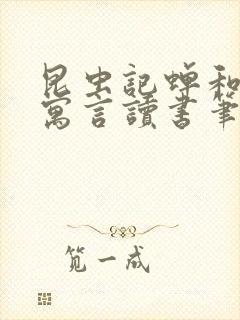 昆虫記蟬和
寓言讀書筆
笕一成